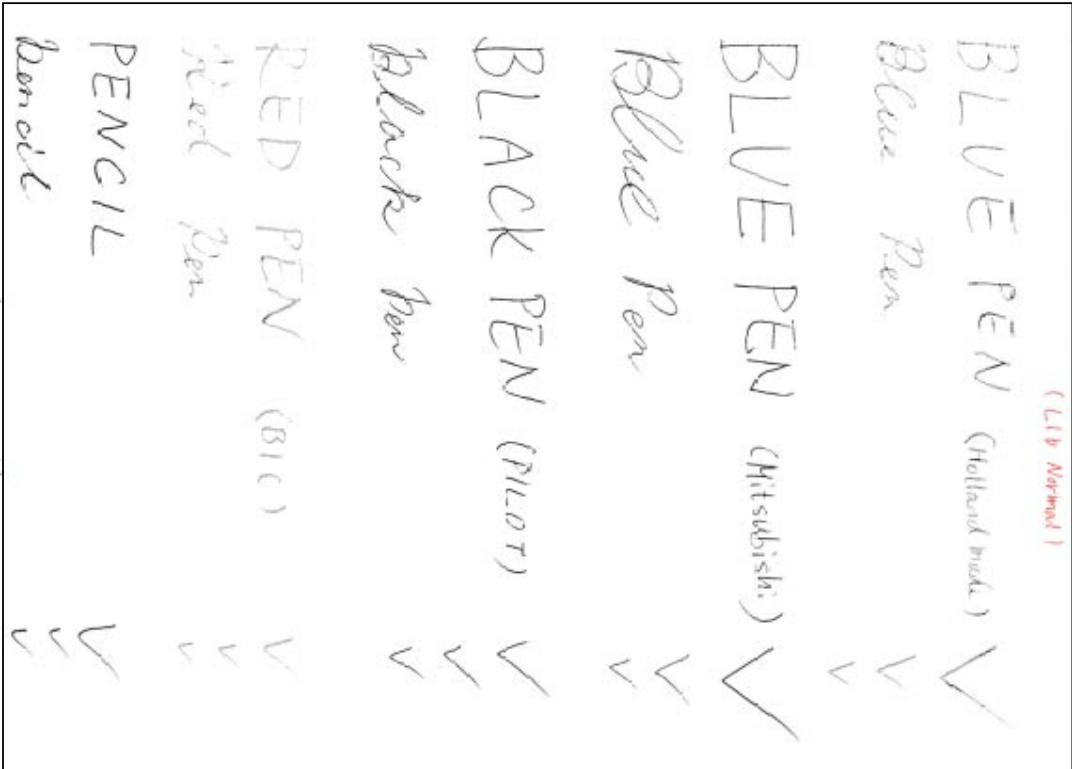 BLUE PEN (Holland made)
Blue Pen
BLUE PEN (Mitsubishi)
Blue Pen
BLACK PEN (PILOT)
Black Pen
RED PEN (BIC)
Red Pen
PENCIL
Pencil